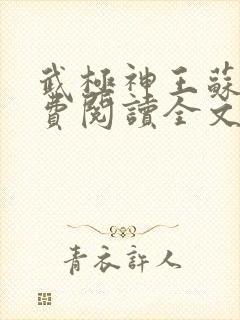 武極神王蘇
費閱讀全文
青衣許人